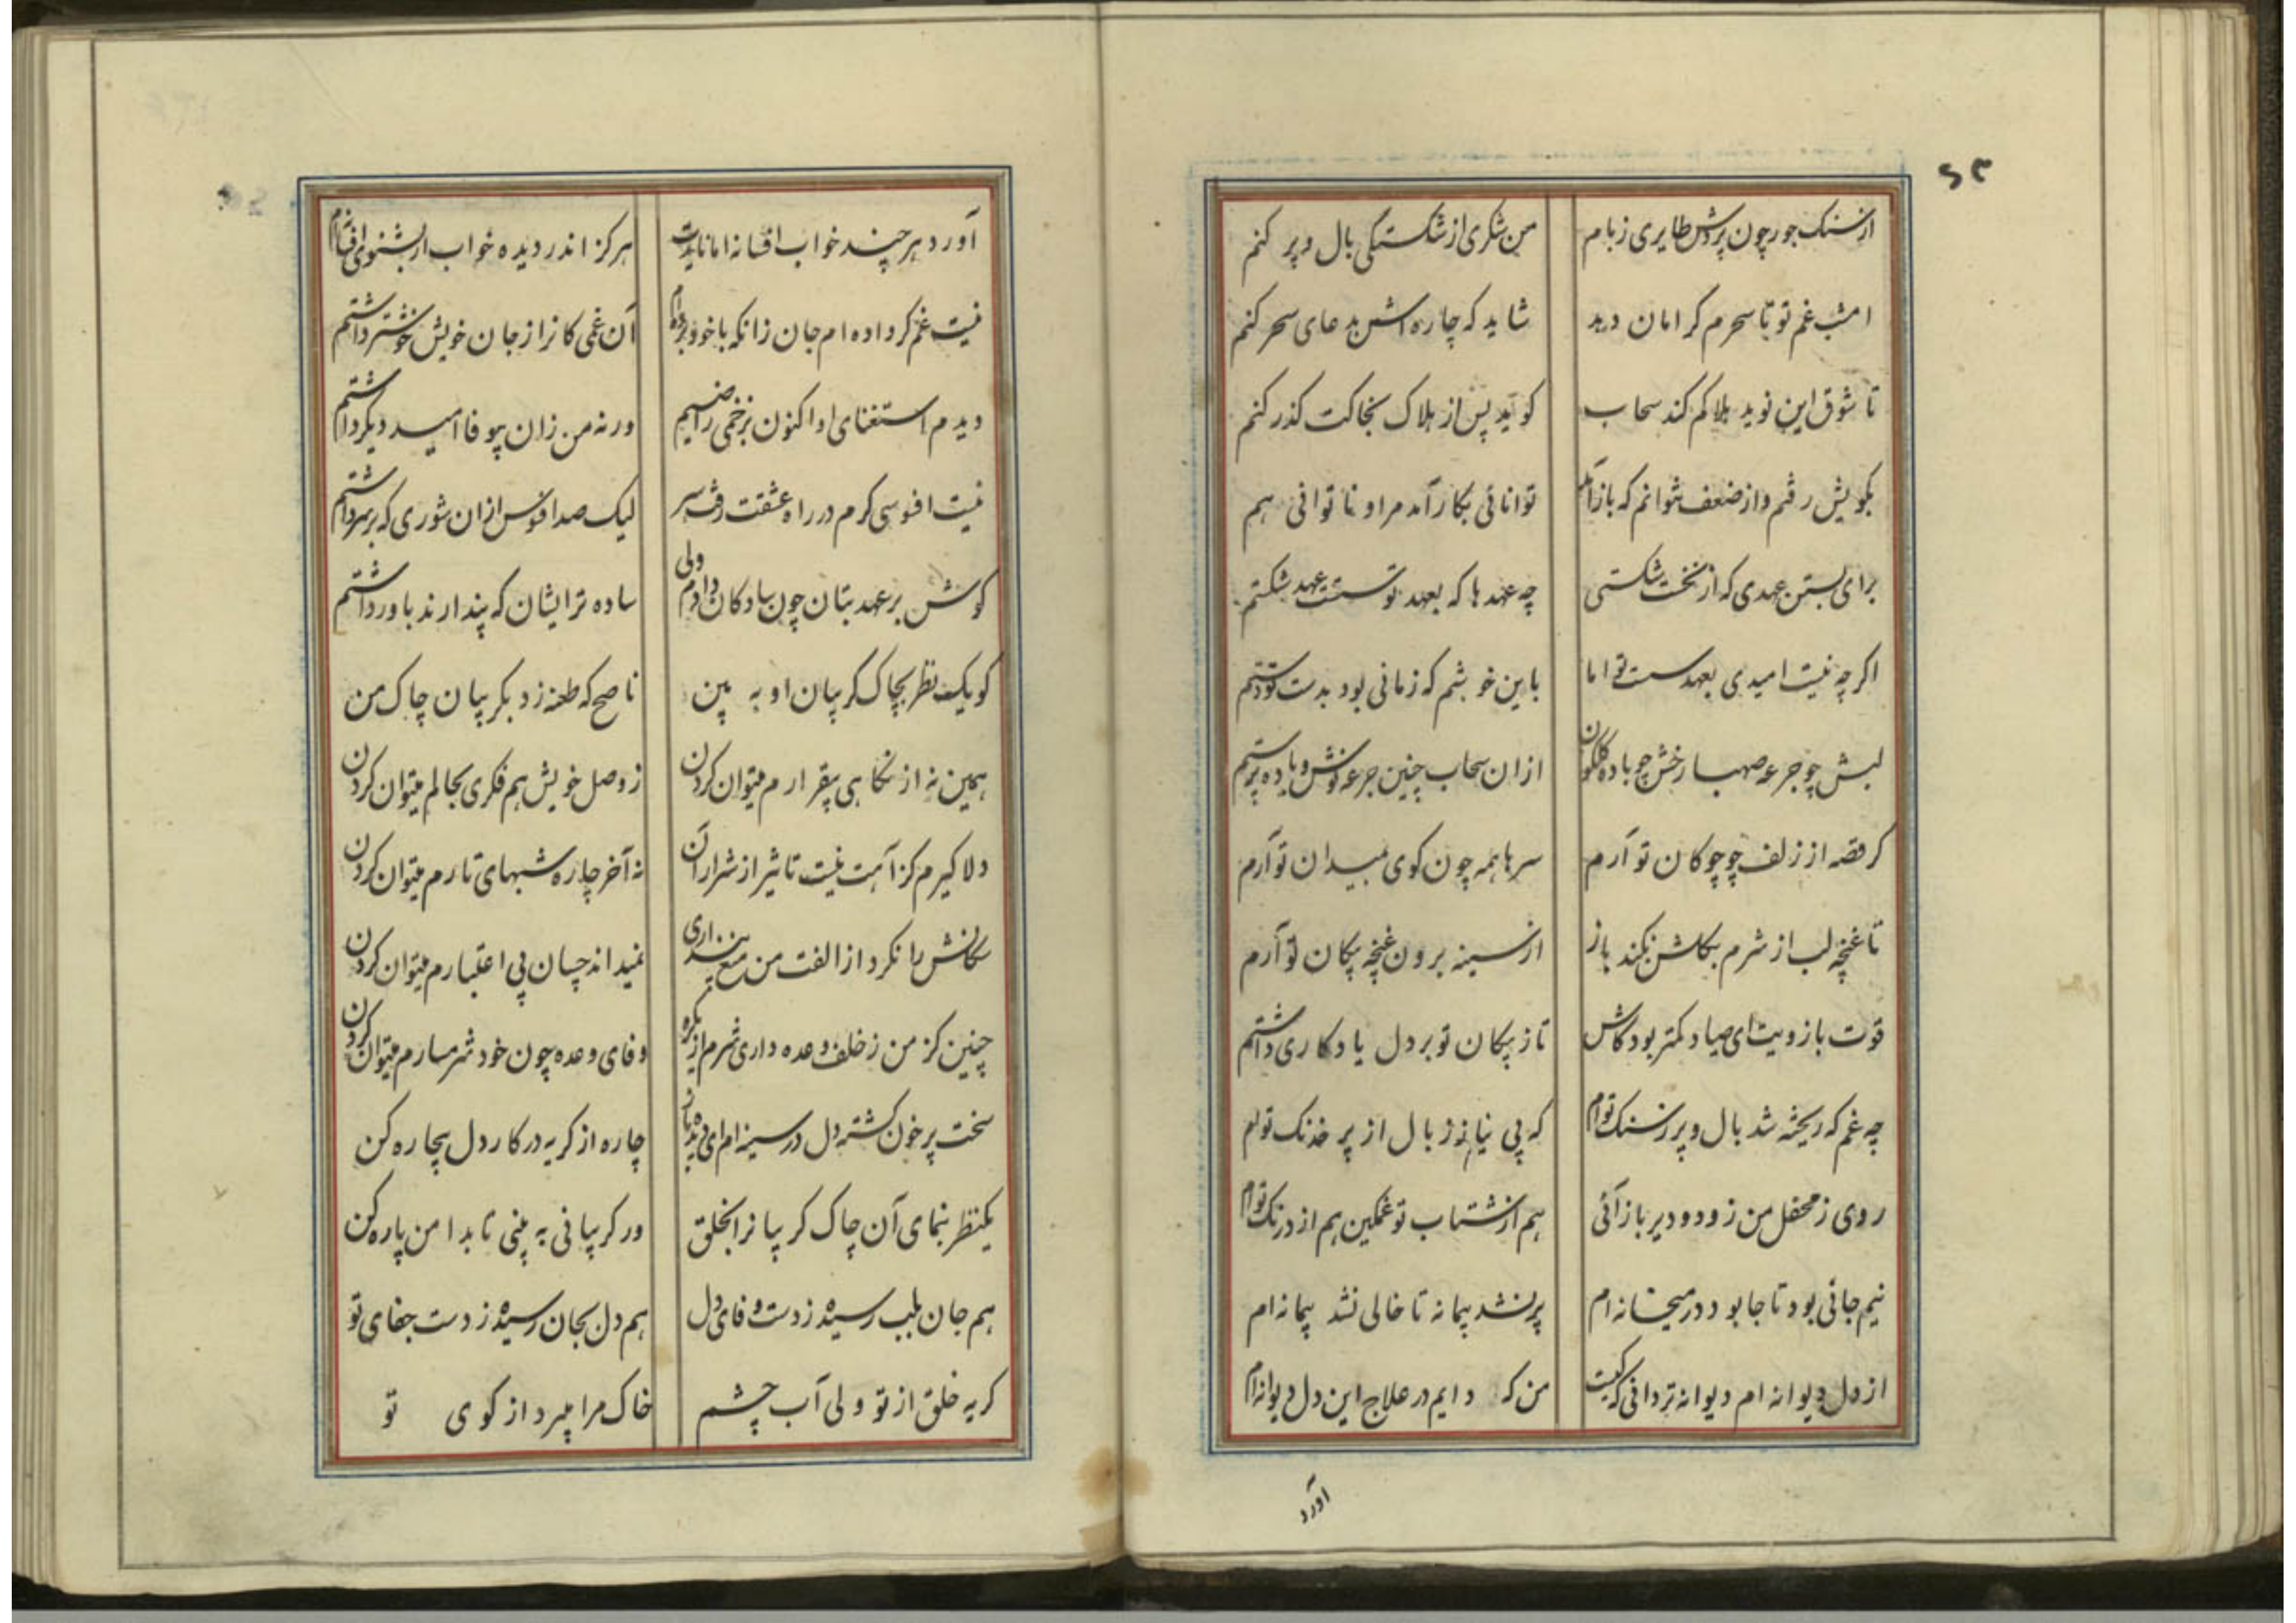 ۶۳
از سنک جور چون پردش طایری ز بام من شکری از شکستکی بال و پر کنم
امشب غم تو تا سحرم کر امان دهد شاید که چاره اش بدعای سحر کنم
تا شوق این نوید هلاکم کند سحاب کوید پس از هلاک بخاکت کذر کنم
بکویش رفتم و از ضعف نتوانم که باز آیم توانائی بکار آمد مرا و ناتوانی هم
برای بستن عهدی که از نخست شکستی چه عهدها که بعهد تو سست عهد شکستم
اکر چه نیست امیدی بعهد سست تو اما باین خوشم که زمانی بود بدست تو دستم
لبش چو جرعه صهبا رخش چو باده کلکون ازان سحاب چنین جرعه نوش و باده پرستم
کر قصه از زلف چو چوکان تو آرم سرها همه چون کوی بمیدان تو آرم
تا غنچه لب از شرم بکلشن نکند باز از سینه برون غنچه پیکان تو آرم
قوت بازویت ای صیاد کمتر بود کاش تا ز پیکان تو بر دل یادکاری داشتم
چه غم که ریخته شد بال و پر ز سنک توام که بی نیاز ز بال از پر خدنک توام
روی ز محفل من زود و دیر باز آئی هم از شتاب تو غمکین هم از درنک توام
نیم جانی بود تا جا بود در میخانه ام پر نشد پیمانه تا خالی نشد پیمانه ام
از دل دیوانه ام دیوانه تر دانی که کیست من که دایم در علاج این دل دیوانه ام
آورد
آورد هر چند خواب افسانه اما نایدت هرکز اندر دیده خواب ار بشنوی افسانه ام
نیست غم کر داده ام جان زانکه با خود برده ام آن غمی کانرا ز جان خویش خوشتر داشتم
دیدم استغنای او اکنون بزخمی راضیم ورنه من زان بیوفا امید دیکر داشتم
نیست افسوسی کرم در راه عشقت رفت سر لیک صد افسوس ازان شوری که بر سر داشتم
کوش بر عهد بتان چون سادکان دادم ولی ساده تر ایشان که پندارند باور داشتم
کو یک نظر بچاک کریبان او به بین ناصح که طعنه زد بکریبان چاک من
همین نه از نکاهی بیقرارم میتوان کردن ز وصل خویش هم فکری بحالم میتوان کردن
دلا کیرم کز آهت نیست تاثیر از شرار آن نه آخر چاره شبهای تارم میتوان کردن
نکاهش را نکرد از الفت من منع پنداری نمیداند چسان بی اعتبارم میتوان کردن
چنین کز من ز خلف وعده داری شرم از یکره وفای وعده چون خود شرمسارم میتوان کردن
سخت پر خون کشته دل در سینه ام ای دیده باز چاره از کریه در کار دل بیچاره کن
یکنظر بنمای آن چاک کریبانرا بخلق ور کریبانی به بینی تا بدامن پاره کن
هم جان بلب رسیده ز دست وفای دل هم دل بجان رسیده ز دست جفای تو
کریه خلق از تو ولی آب چشم خاک مرا میبرد از کوی تو